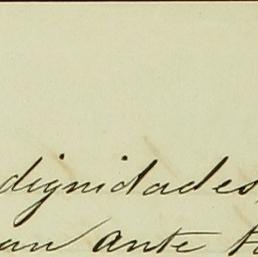 dignidades,
an ante